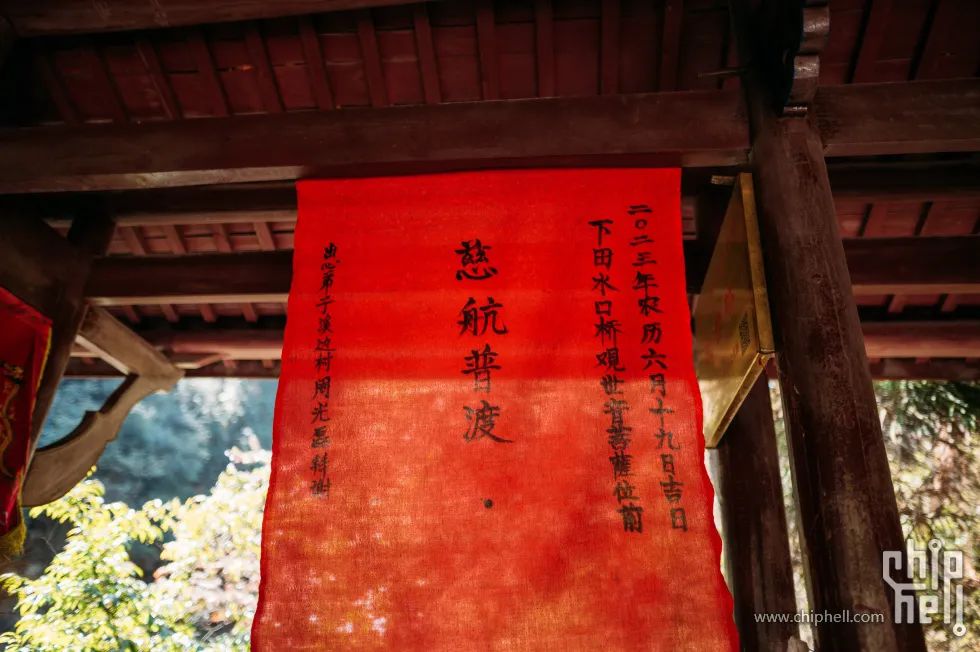 二〇二三年农历六月十九日吉日
下田水口桥观世音菩萨位前
慈航普渡
弟子溪边村周光
www.chiphell.com
chip hell